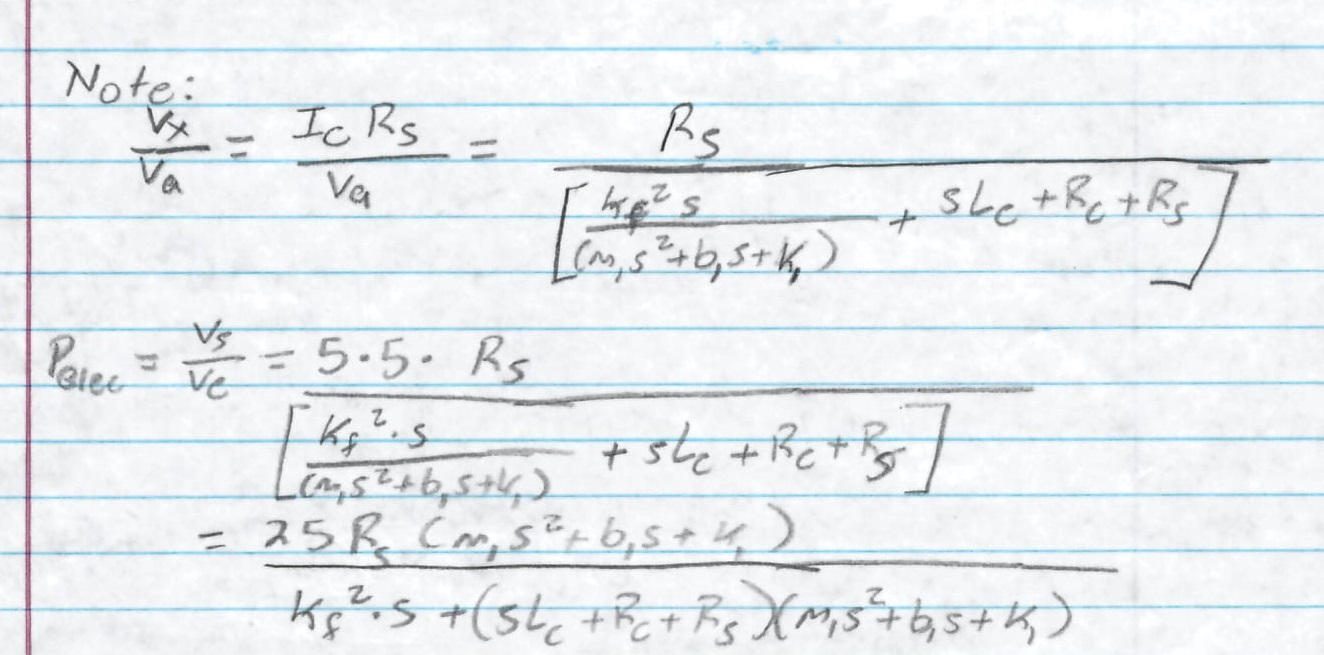 Note:
Vx/Va = I_C R_S/Va = R_S/[k_f² s/(m₁s²+b₁s+k₁) + sL_c + R_c + R_S]
P_elec = V_s/V_c = 5·5· R_S/[K_f²·s/(m₁s²+b₁s+k₁) + sL_c + R_c + R_S]
= 25 R_s (m₁s²+b₁s+k₁)/K_f²·s + (sL_c + R_c + R_s)(m₁s²+b₁s+K₁)